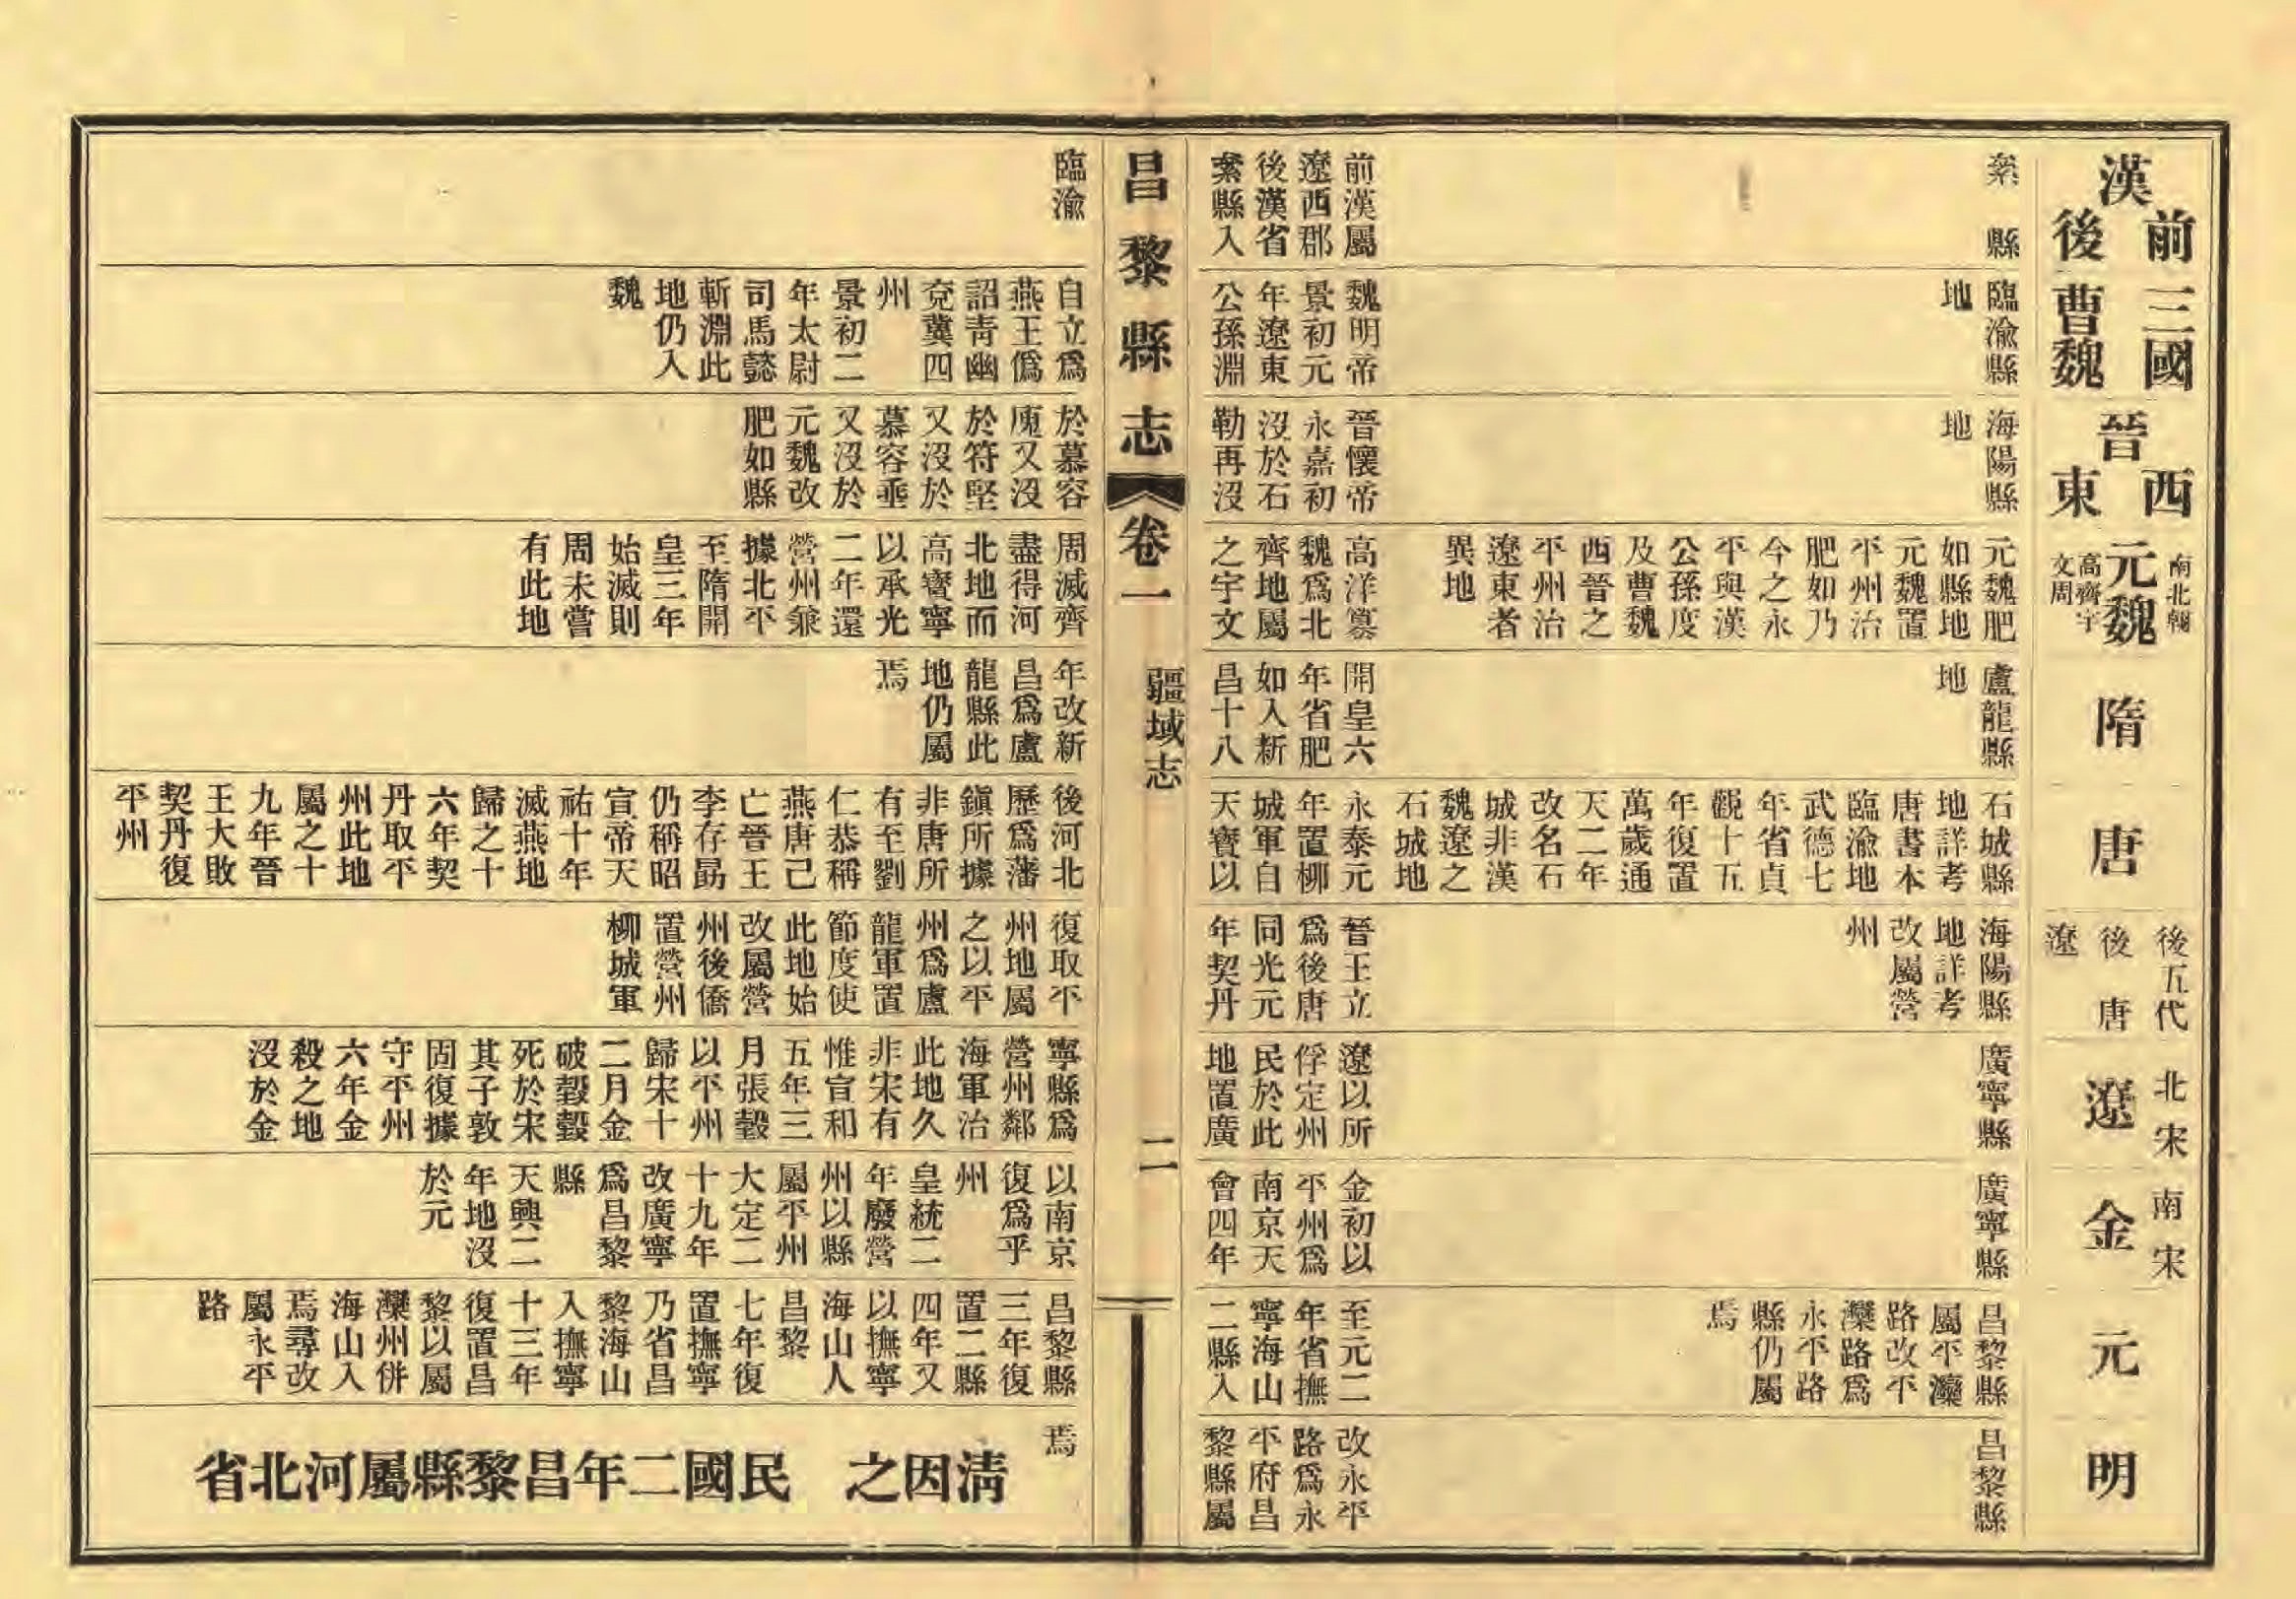 漢
前
後
絫縣
前漢屬
遼西郡
後漢省
絫縣入
臨渝
三國
曹魏
臨渝縣
地
魏明帝
景初元
年遼東
公孫淵
自立爲
燕王僞
詔靑幽
兗冀四
州
景初二
年太尉
司馬懿
斬淵此
地仍入
魏
晉
西
東
海陽縣
地
晉懷帝
永嘉初
沒於石
勒再沒
於慕容
廆又沒
於符堅
又沒於
慕容垂
又沒於
元魏改
肥如縣
南北朝
元魏
高齊宇
文周
元魏肥
如縣地
元魏置
平州治
肥如乃
今之永
平與漢
公孫度
及曹魏
西晉之
平州治
遼東者
異地
高洋篡
魏爲北
齊地屬
之宇文
周滅齊
盡得河
北地而
高寶寧
以承光
二年還
營州兼
據北平
至隋開
皇三年
始滅則
周未嘗
有此地
隋
盧龍縣
地
開皇六
年省肥
如入新
昌十八
年改新
昌爲盧
龍縣此
地仍屬
焉
唐
石城縣
地詳考
唐書本
臨渝地
武德七
年省貞
觀十五
年復置
萬歲通
天二年
改名石
城非漢
魏遼之
石城地
永泰元
年置柳
城軍自
天寶以
後河北
歷爲藩
鎭所據
非唐所
有至劉
仁恭稱
燕唐己
亡晉王
李存勗
仍稱昭
宣帝天
祐十年
滅燕地
歸之十
六年契
丹取平
州此地
屬之十
九年晉
王大敗
契丹復
平州
後五代
後唐
遼
海陽縣
地詳考
改屬營
州
晉王立
爲後唐
同光元
年契丹
復取平
州地屬
之以平
州爲盧
龍軍置
節度使
此地始
改屬營
州後僑
置營州
柳城軍
北宋
遼
廣寧縣
遼以所
俘定州
民於此
地置廣
寧縣爲
營州鄰
海軍治
此地久
非宋有
惟宣和
五年三
月張瑴
以平州
歸宋十
二月金
破瑴瑴
死於宋
其子敦
固復據
守平州
六年金
殺之地
沒於金
南宋
金
廣寧縣
金初以
平州爲
南京天
會四年
以南京
復爲平
州
皇統二
年廢營
州以縣
屬平州
大定二
十九年
改廣寧
爲昌黎
縣
天興二
年地沒
於元
元
昌黎縣
屬平灤
路改平
灤路爲
永平路
縣仍屬
焉
至元二
年省撫
寧海山
二縣入
昌黎縣
三年復
置二縣
四年又
以撫寧
海山人
昌黎
七年復
置撫寧
乃省昌
黎海山
入撫寧
十三年
復置昌
黎以屬
灤州併
海山入
焉尋改
屬永平
路
明
昌黎縣
改永平
路爲永
平府昌
黎縣屬
焉
淸因之　民國二年昌黎縣屬河北省
昌黎縣志
卷一
疆域志
二